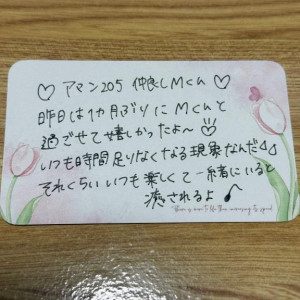 ♡ アマン205 仲良しMくん ♡
昨日は1カ月ぶりにMくんと
過ごせて嬉しかったよ〜
いつも時間足りなくなる現象なんだ
それくらいいつも楽しくて一緒にいると
癒されるよ♪